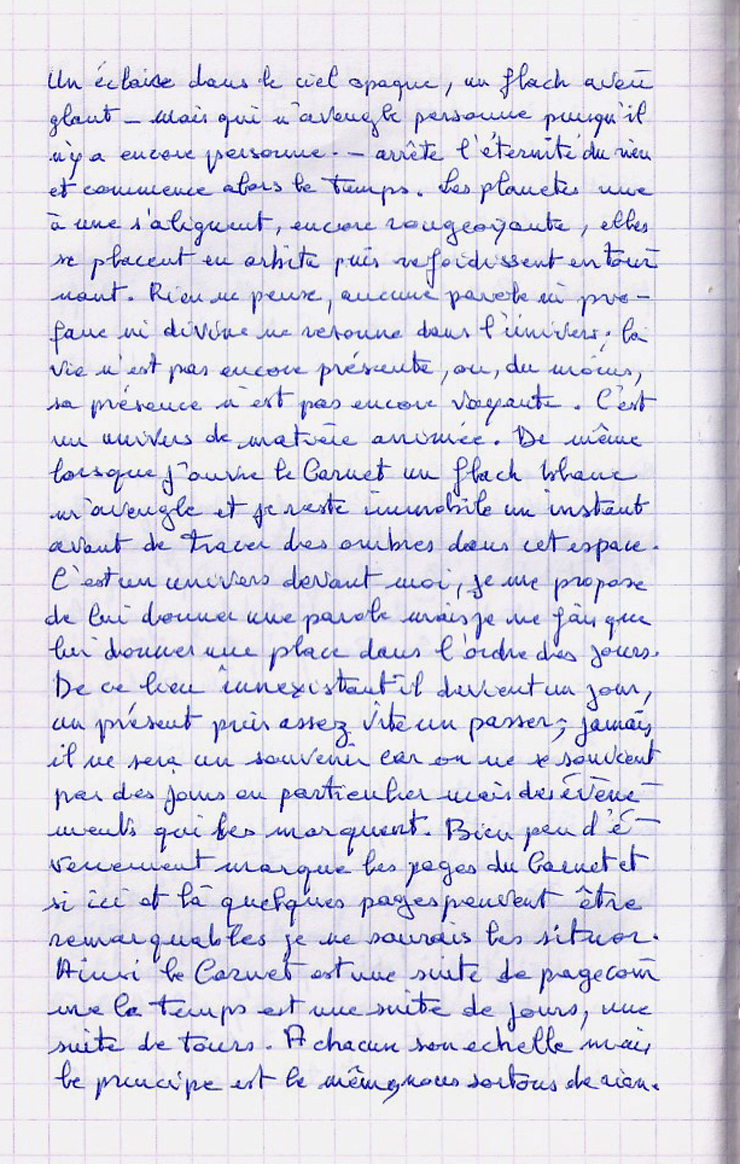 Un éclaire dans le ciel opaque, un flach aveu
glant – mais qui n'aveugle personne puisqu'il
n'y a encore personne. – arrête l'éternité du rien
et commence alors le temps. Les planètes une
à une s'alignent, encore rougeoyante, elles
se placent en orbite puis refoidissent en tour
nant. Rien ne pense, aucune parole ni pro-
fane ni divine ne resonne dans l'univers; la
vie n'est pas encore présente, ou, du moins,
sa présence n'est pas encore voyante. C'est
un univers de matière animée. De même
lorsque j'ouvre le Carnet un flach blanc
m'aveugle et je reste immobile un instant
avant de tracer des ombres dans cet espace.
C'est un univers devant moi, je me propose
de lui donner une parole mais je ne fais que
lui donner une place dans l'ordre des jours.
De ce lieu innexistant il devient un jour,
un présent puis assez vite un passer; jamais
il ne sera un souvenir car on ne se souvient
pas des jours en particulier mais des évène-
ments qui les marquent. Bien peu d'é-
venement marque les pages du Carnet et
si ici et là quelques pages peuvent être
remarquables je ne saurais les situer.
Ainsi le Carnet est une suite de page com
me le temps est une suite de jours, une
suite de tours. A chacun son echelle mais
le principe est le même, nous sortons de rien.